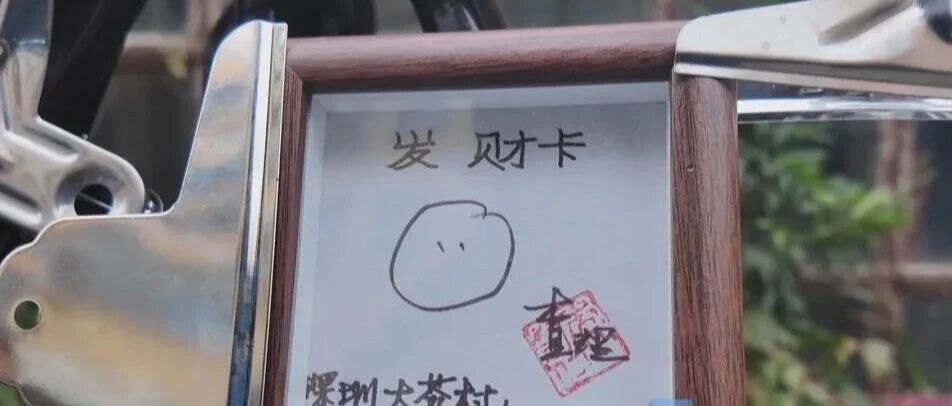 发财卡
查理
深圳大芬村,